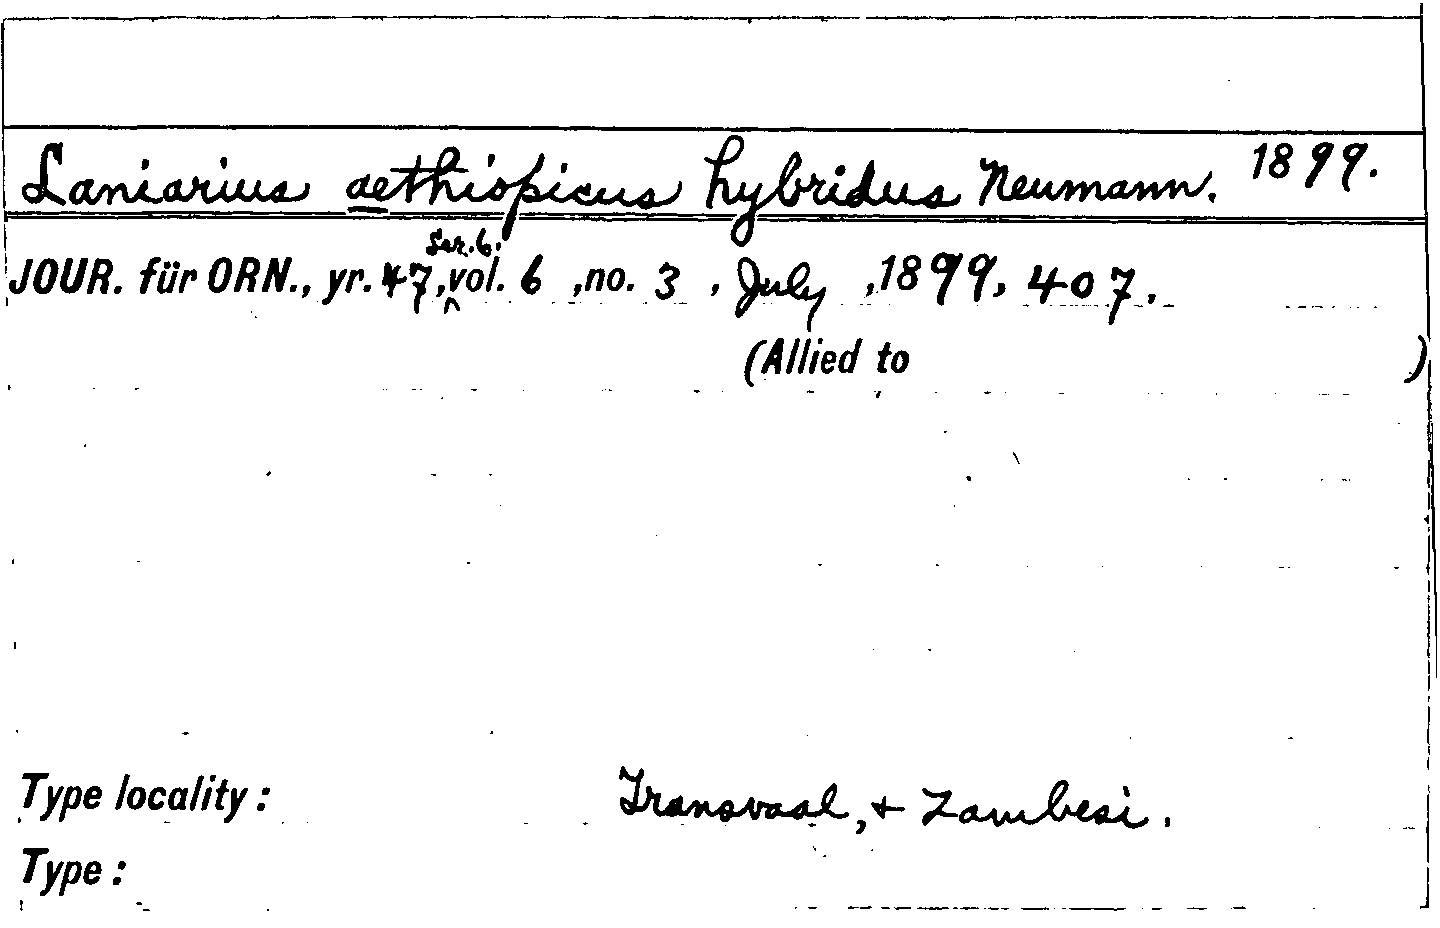 Laniarius aethiopicus hybridus Neumann. 1899.
Ser. 6.
JOUR. für ORN., yr. 47, vol. 6 , no. 3 , July , 1899, 407.
(Allied to )
Type locality : Transvaal, + Zambesi.
Type :